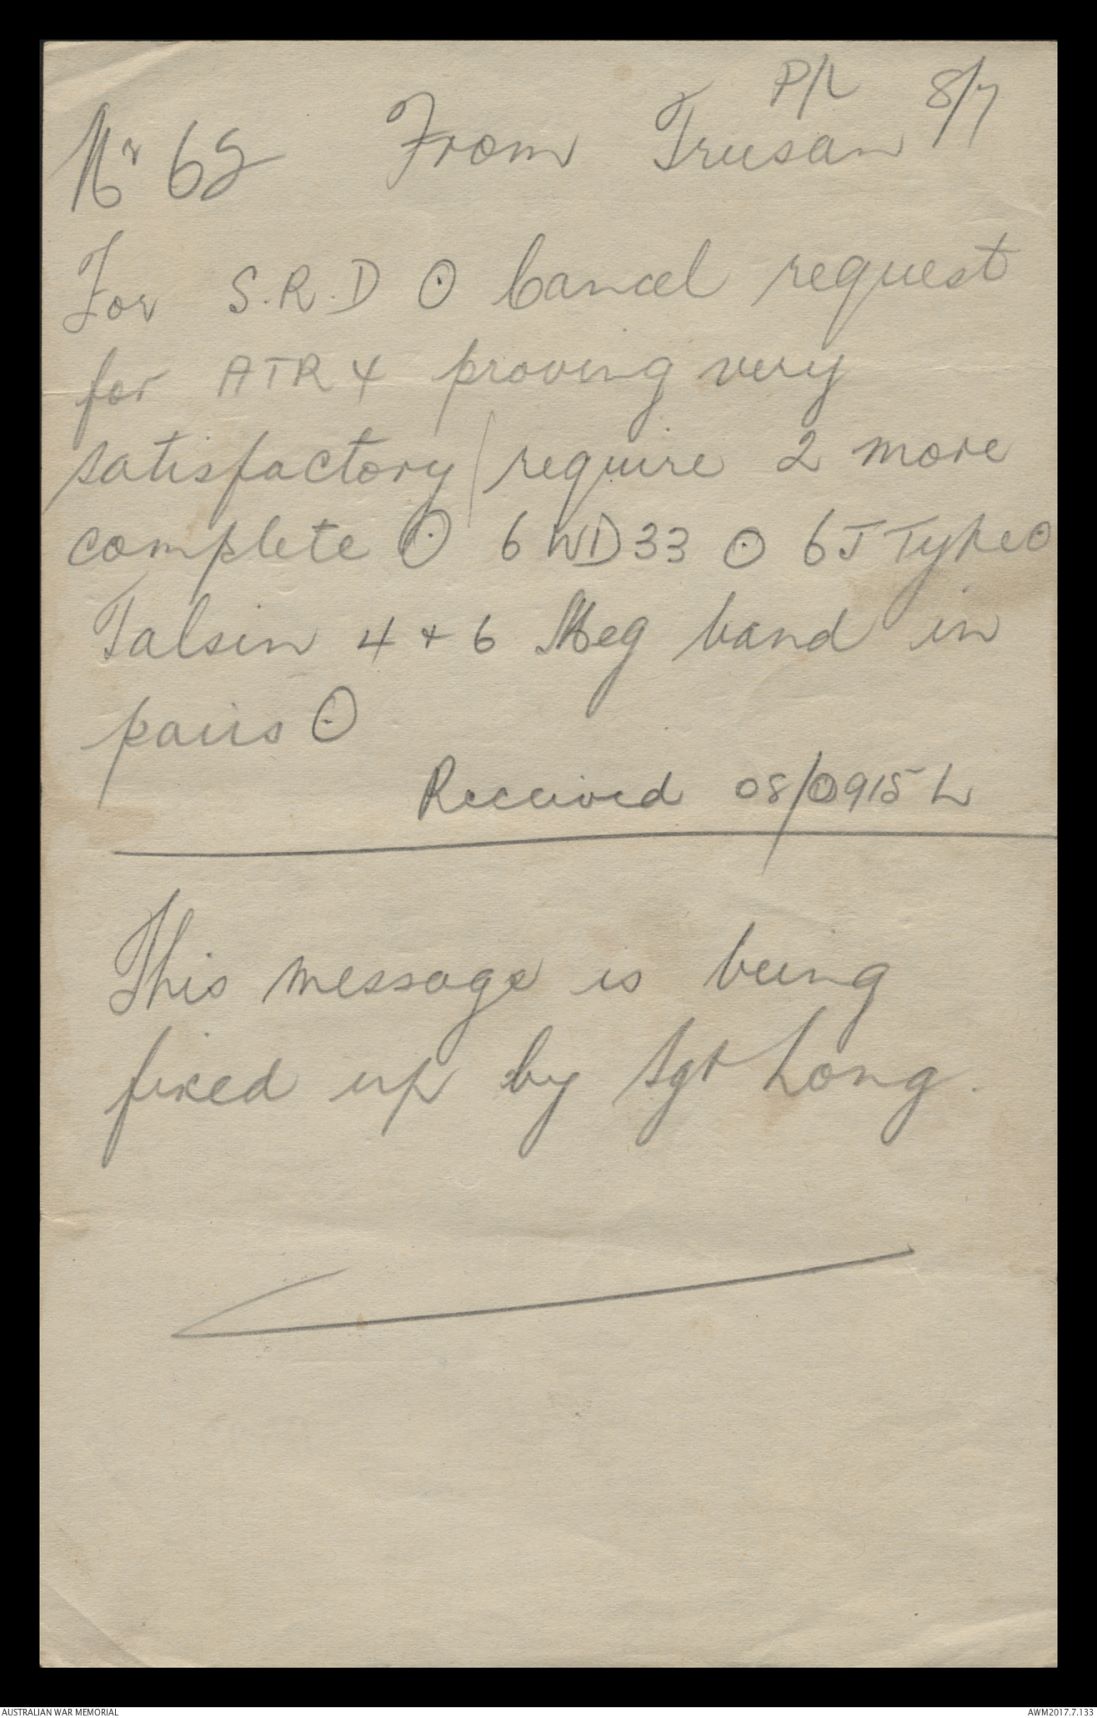 P/L 8/7
Nr 68 From Trusan
For S.R.D ⊙ Cancel request
for ATR4 proving very
satisfactory / require 2 more
complete ⊙ 6 WD33 ⊙ 6J Type ⊙
Talsin 4 + 6 Meg band in
pairs ⊙
Received 08/0915 L
This message is being
fixed up by Sgt Long.
AUSTRALIAN WAR MEMORIAL
AWM2017.7.133